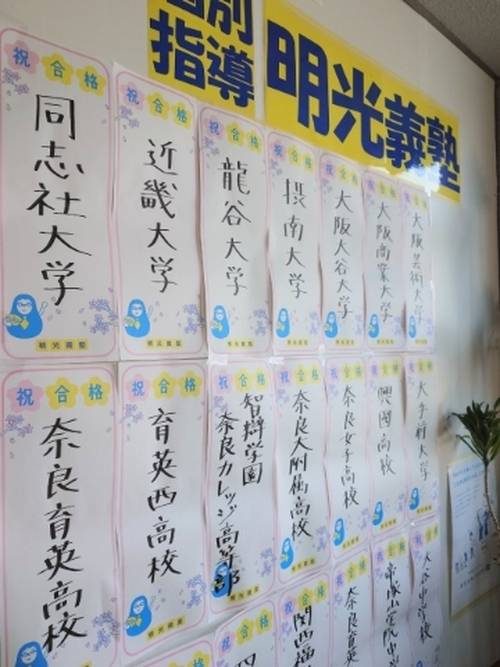 個別
指導
明光義塾
祝合格
同志社大学
明光義塾
祝合格
近畿大学
明光義塾
祝合格
龍谷大学
明光義塾
祝合格
摂南大学
明光義塾
祝合格
大阪大谷大学
祝合格
大阪商業大学
祝合格
大阪芸術大学
祝合格
奈良育英高校
祝合格
育英西高校
明光義塾
祝合格
智辯学園
奈良カレッジ高等部
祝合格
奈良大附属高校
祝合格
奈良女子高校
祝合格
興國高校
祝合格
大手前大学
祝合格
祝合格
祝合格
奈良育英
祝合格
帝塚山学院中
祝合格
大谷中学校